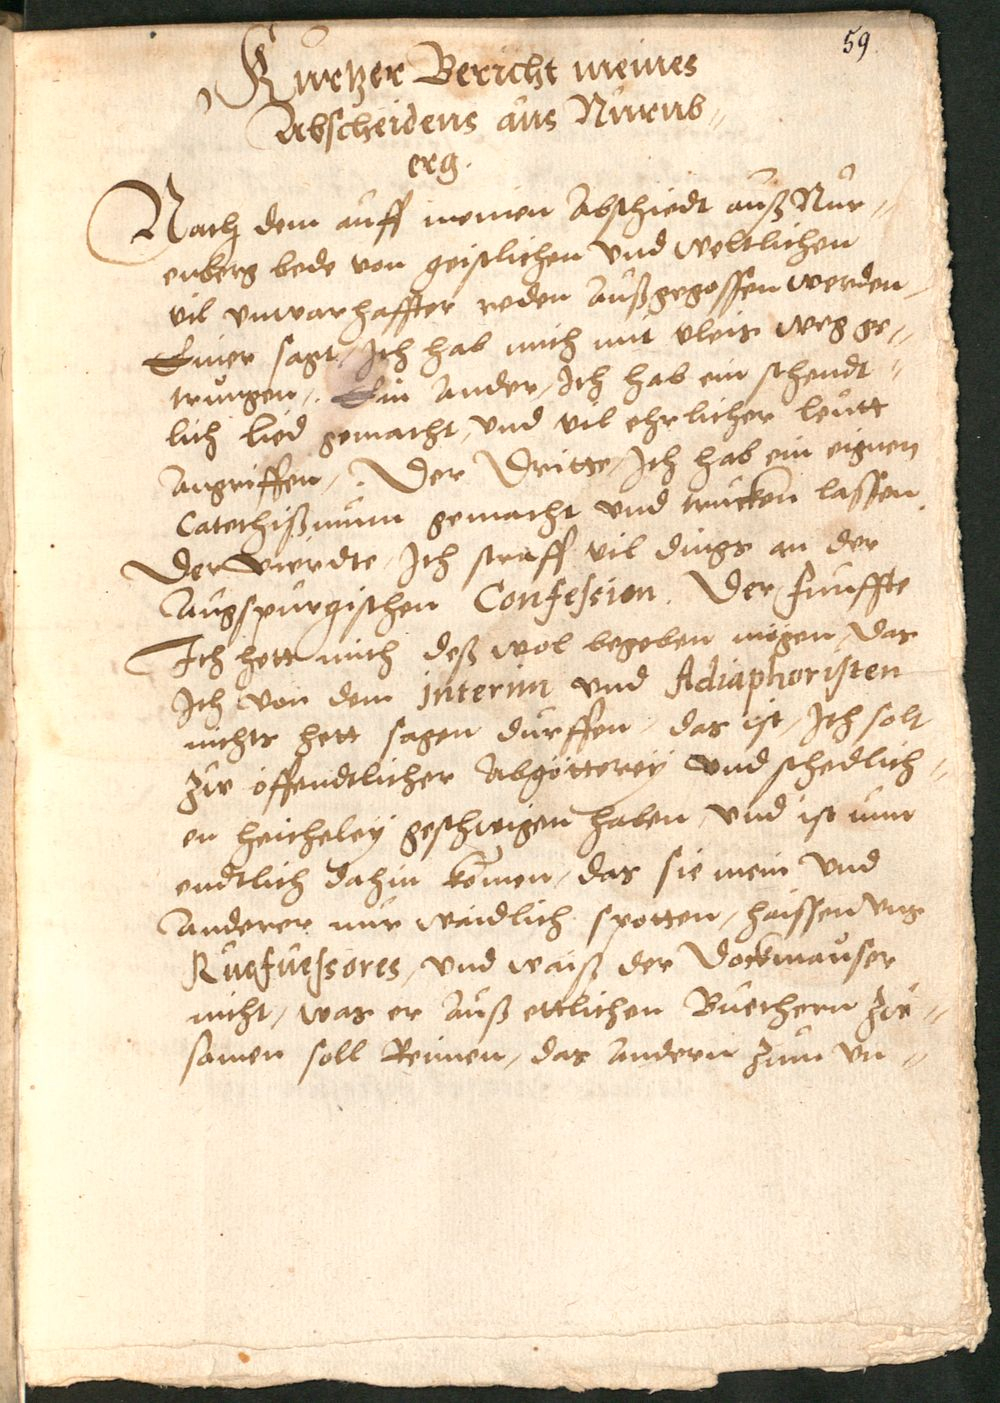 59
Kurtzer Bericht meines
Abscheidens aus Nurnb=
erg.
Nach dem auff meinen Abschiedt auß Nur=
enberg bede von geistlichen und weltlichen
vil unwarhaffter reden Außgegossen werden,
Einer sagt, Ich hab mich mit vleis weg ge=
trungen,. Ein Ander, Ich hab ein schendt=
lich lied gemacht, und vil ehrlicher leutt
Angriffen,. Der Dritte, Ich hab ein eignen
Catechißmum gemacht und trucken lassen.
Der Vierdte, Ich straff vil dings an der
Augspurgischen Confession. Der funffte
Ich hett mich deß wol begeben mögen, das
Ich von dem interim und Adiaphoristen
nichts hett sagen durffen, das ist, Ich solt
zu öffendtlicher Abgötterey und schedlich=
en heicheley geschwigen haben, und ist nun
endtlich dahin komen, das sie mein und
Anderer nur waidlich spotten, haissen uns
und waiß der Dockmauser
nicht, was er Auß ettlichen Buechern zu=
samen soll Reimen, das Andern zum un=